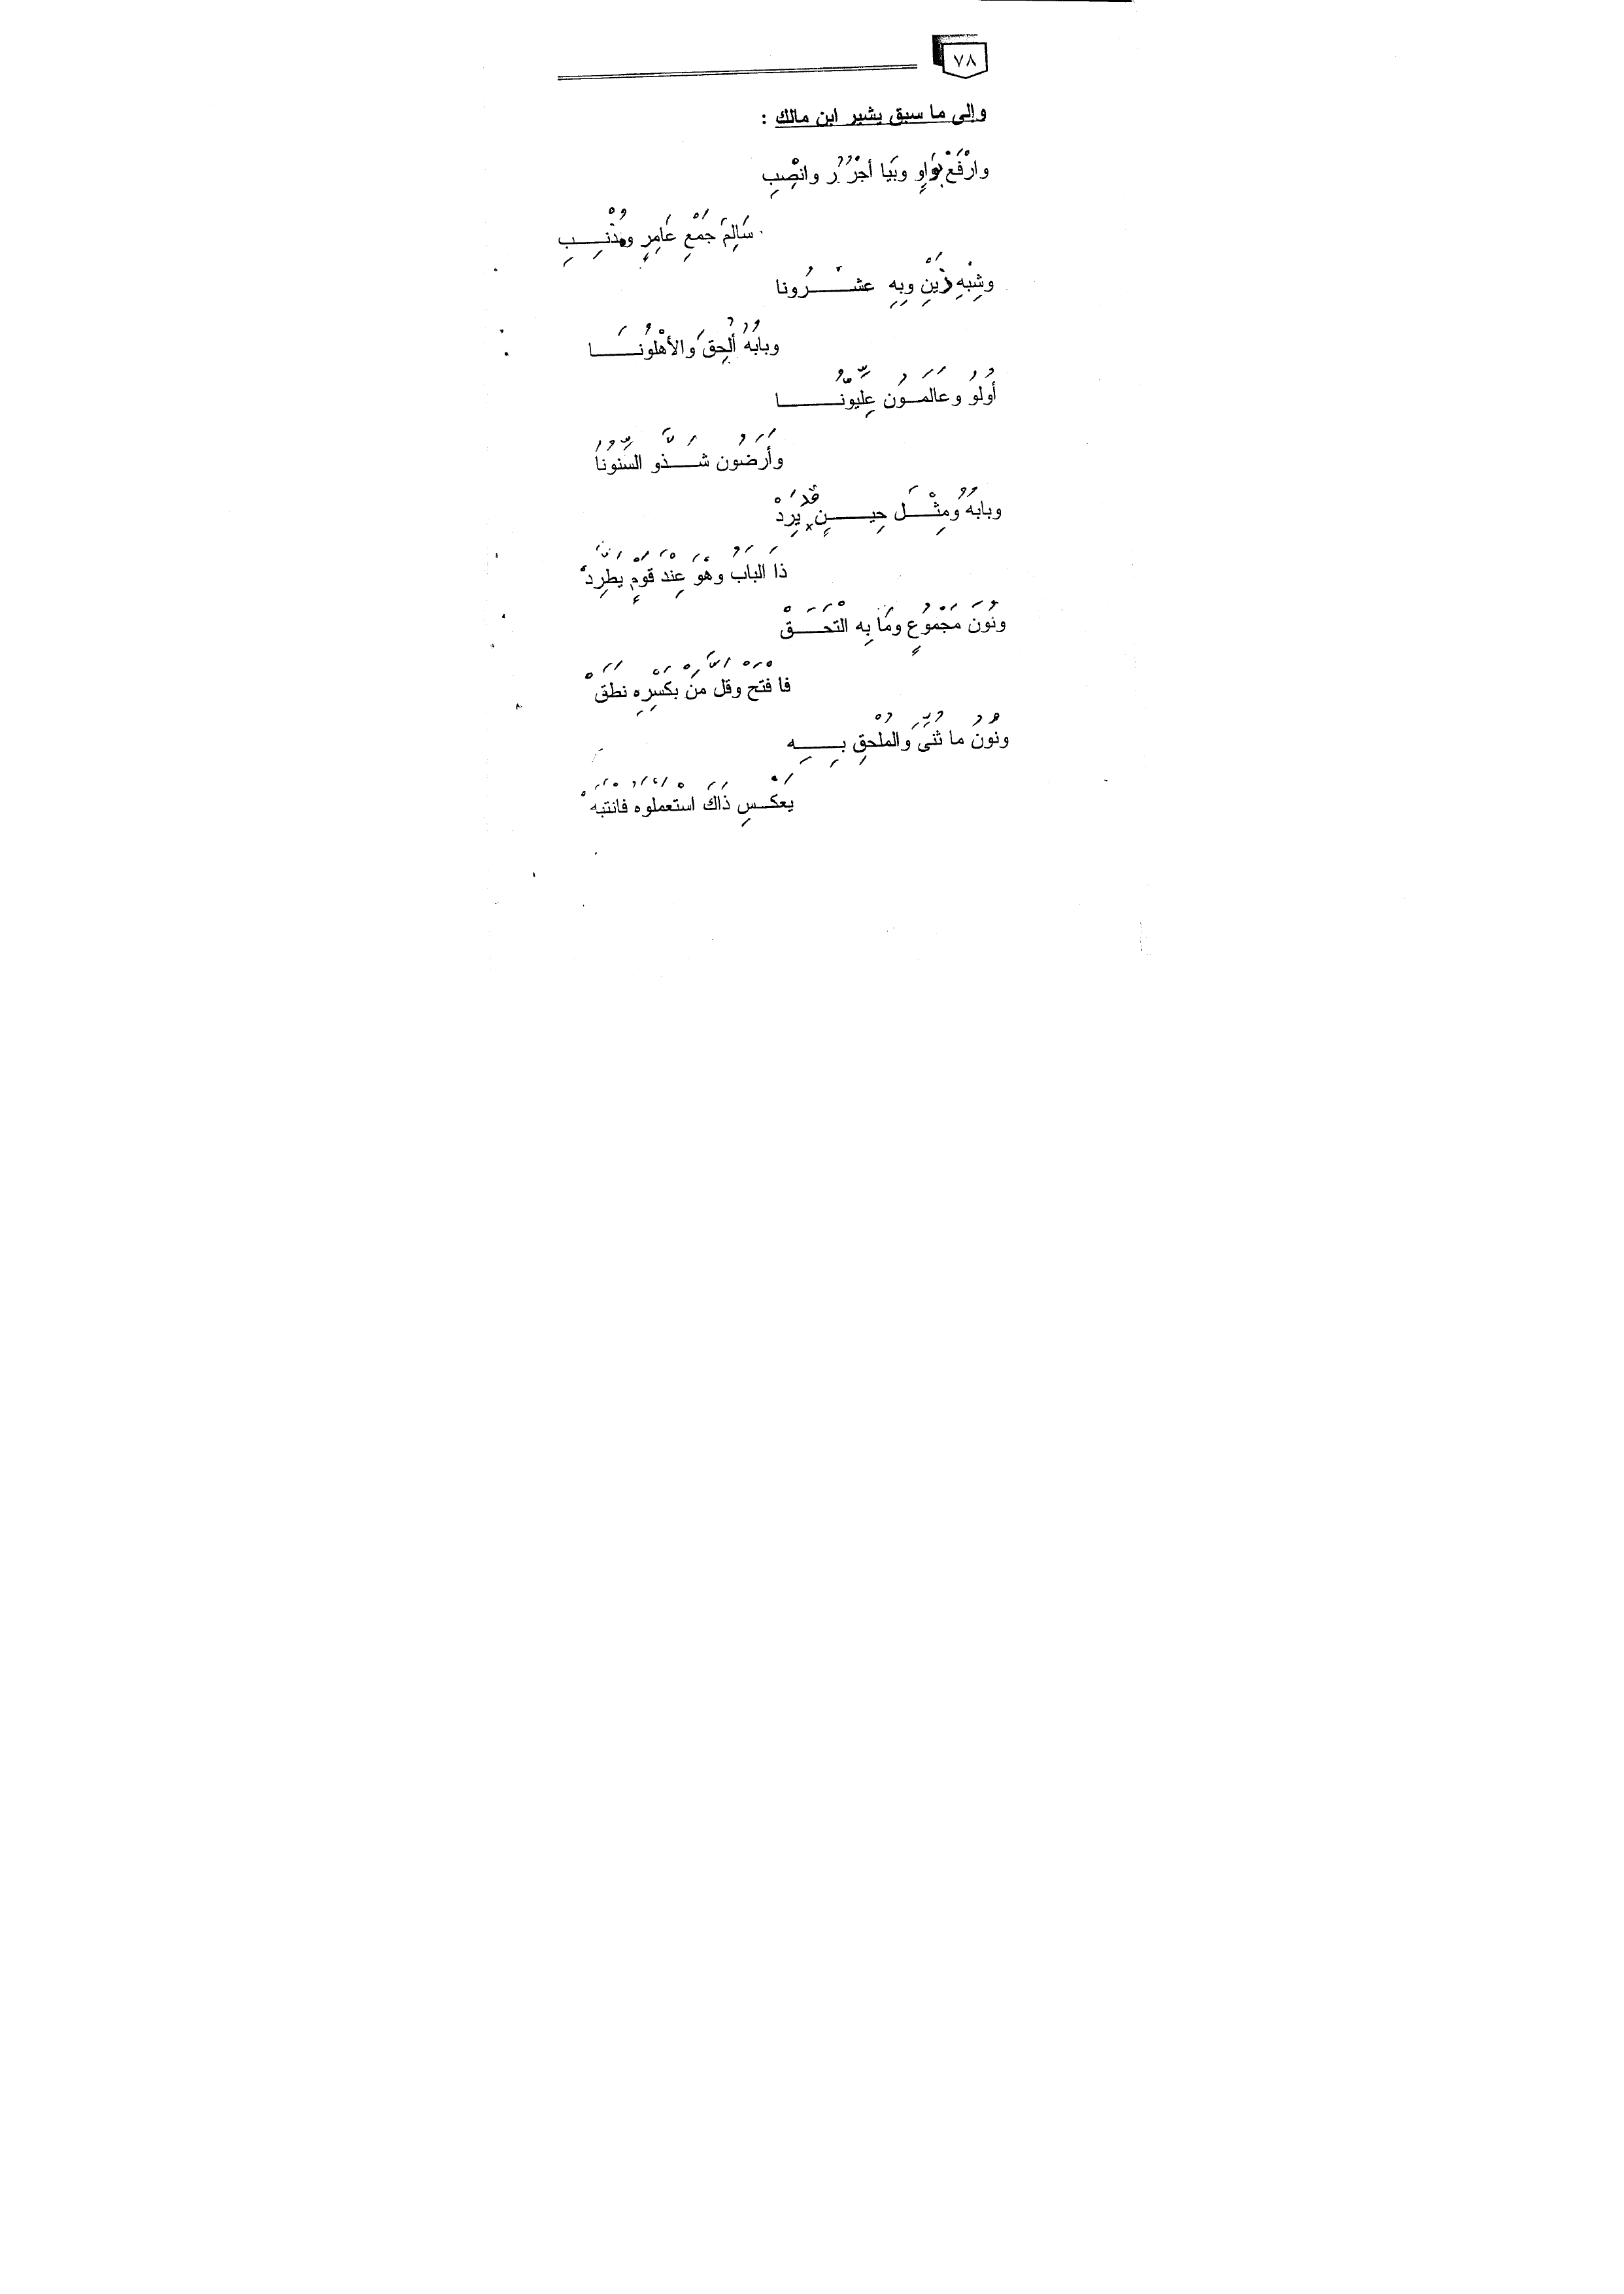 ٧٨
وإلى ما سبق يشير ابن مالك :
وارْفَعْ بِوَاوٍ وبَيَا أجْرُرْ وانْصِبِ
سَالِمَ جَمْعِ عَامِرٍ ومُذْنِـــبِ
وشِبْهِ ذَيْنِ وبِهِ عشْـــــرُونا
وبابُهُ أُلْحِقَ والأهْلُونَـــــا
أُولُو وعَالَمـُـون عِلِّيُّونـــــا
وأَرَضُون شَـــذَّ والسِّنُونَا
وبابُهُ ومِثْــلَ حِيـــنٍ قَدْ يَرِدْ
ذَا البابُ وهْوَ عِنْدَ قَوْمٍ يَطَّرِدْ
ونُونَ مَجْمُوعٍ ومَا بِه الْتَحَـــقْ
فا فْتَحْ وقَلَّ مَنْ بكَسْرِهِ نَطَقْ
ونُونُ ما ثُنِّيَ والمُلْحَقِ بِـــهِ
يعَكْـسِ ذَاكَ اسْتَعْمَلُوهُ فانْتَبِهْ